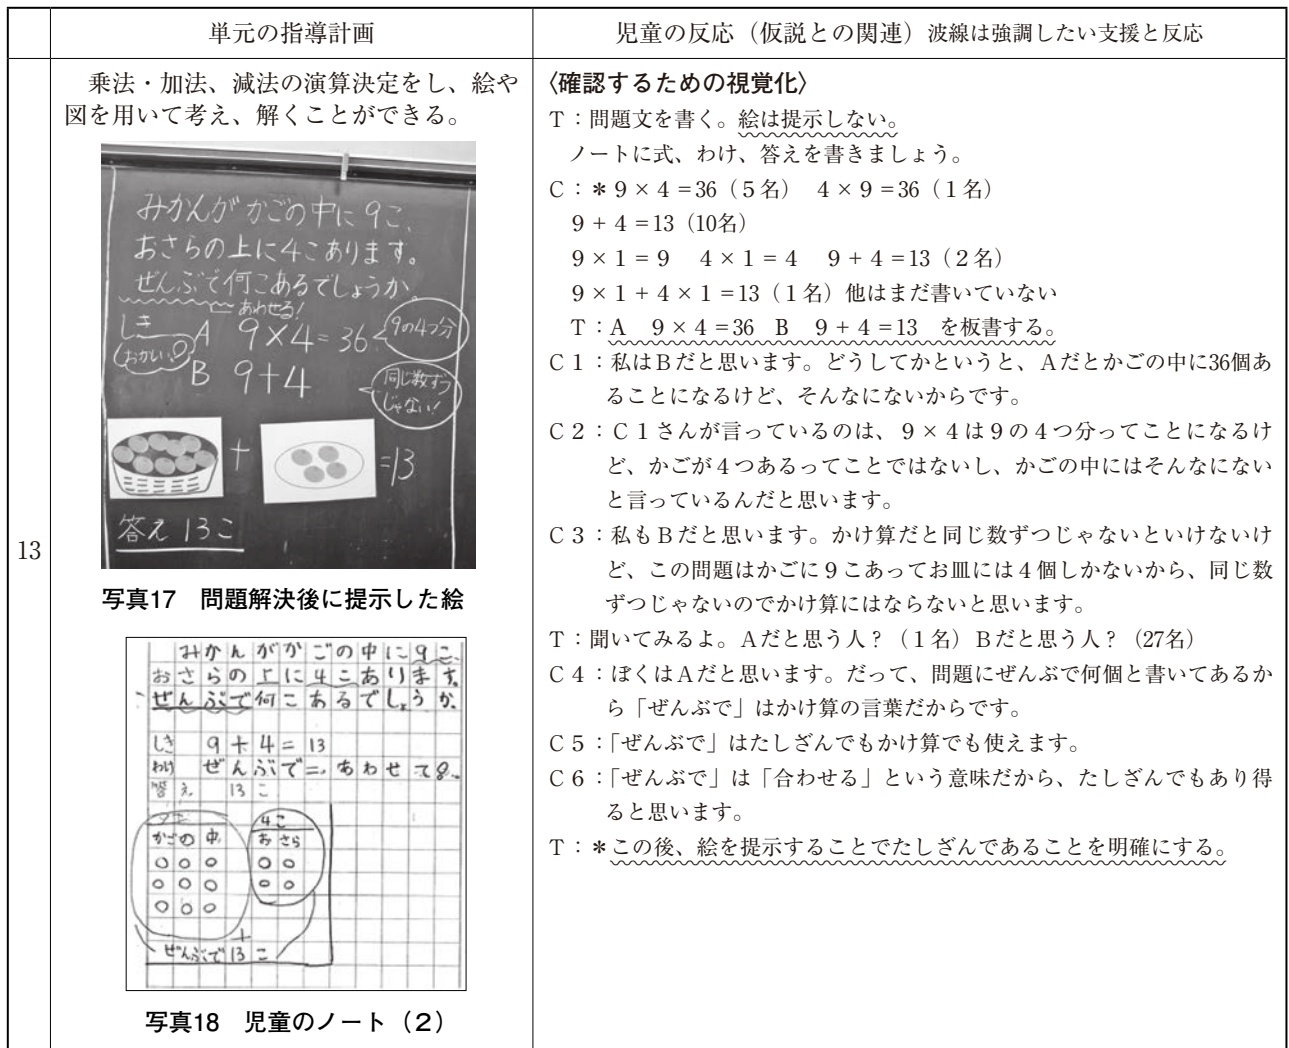 単元の指導計画
児童の反応（仮説との関連）波線は強調したい支援と反応
13
乗法・加法、減法の演算決定をし、絵や
図を用いて考え、解くことができる。
みかんが かごの中に 9こ、
おさらの上に4こあります。
ぜんぶで何こあるでしょうか。
あわせる！
しき
A 9×4=36
9の4つ分
おかしい
B 9+4
同じ数ずつ
じゃない！
+
=13
答え 13こ
写真17　問題解決後に提示した絵
みかんがかごの中に9こ、
おさらの上に4こあります。
ぜんぶで何こあるでしょうか。
しき 9+4=13
わけ ぜんぶで=、あわせて
答え 13こ
かごの中
4こ
おさら
+
ぜんぶで13こ
写真18　児童のノート（2）
〈確認するための視覚化〉
T：問題文を書く。絵は提示しない。
ノートに式、わけ、答えを書きましょう。
C：＊9×4=36（5名）　4×9=36（1名）
9+4=13（10名）
9×1=9　4×1=4　9+4=13（2名）
9×1+4×1=13（1名）他はまだ書いていない
T：A　9×4=36　B　9+4=13　を板書する。
C1：私はBだと思います。どうしてかというと、Aだとかごの中に36個あ
ることになるけど、そんなにないからです。
C2：C1さんが言っているのは、9×4は9の4つ分ってことになるけ
ど、かごが4つあるってことではないし、かごの中にはそんなにない
と言っているんだと思います。
C3：私もBだと思います。かけ算だと同じ数ずつじゃないといけないけ
ど、この問題はかごに9こあってお皿には4個しかないから、同じ数
ずつじゃないのでかけ算にはならないと思います。
T：聞いてみるよ。Aだと思う人？（1名）Bだと思う人？（27名）
C4：ぼくはAだと思います。だって、問題にぜんぶで何個と書いてあるか
ら「ぜんぶで」はかけ算の言葉だからです。
C5：「ぜんぶで」はたしざんでもかけ算でも使えます。
C6：「ぜんぶで」は「合わせる」という意味だから、たしざんでもあり得
ると思います。
T：＊この後、絵を提示することでたしざんであることを明確にする。